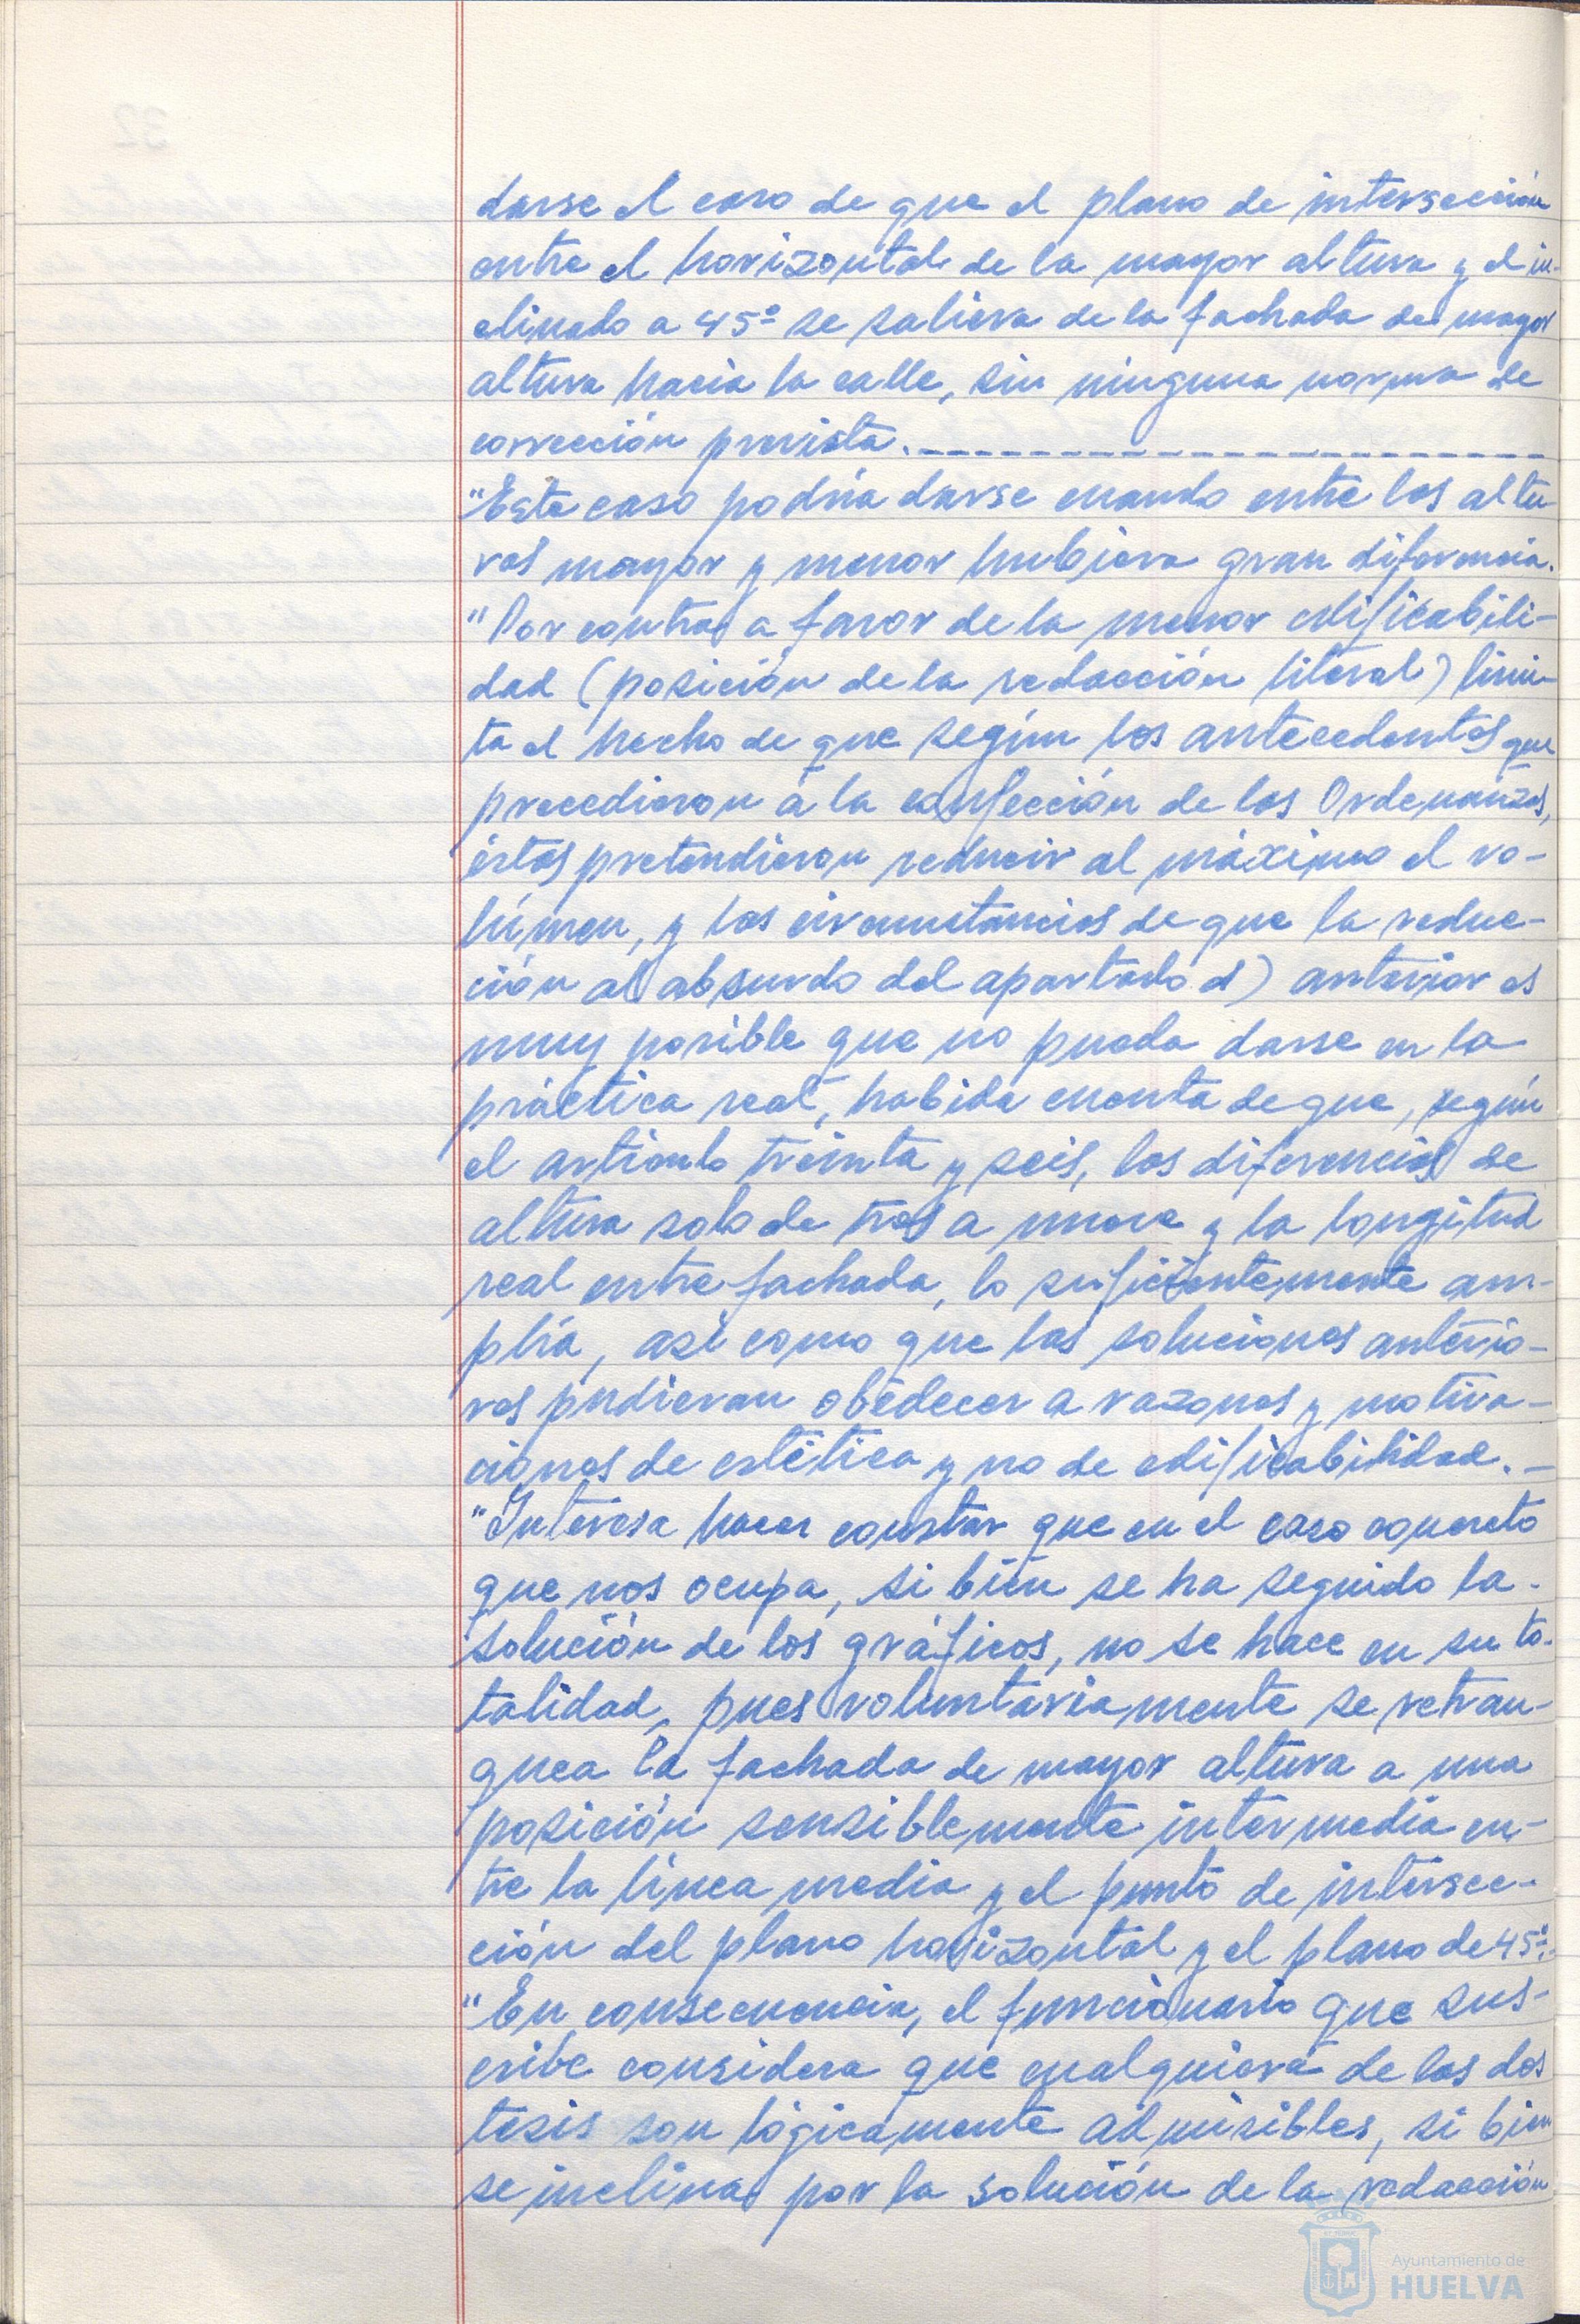 darse el caso de que el plano de intersección
entre el horizontal de la mayor altura y el in-
clinado a 45º se saliera de la fachada de mayor
altura hacia la calle, sin ninguna norma de
corrección prevista.
"Este caso podría darse cuando entre las altu-
ras mayor y menor hubiera gran diferencia.
"Por contra a favor de la menor edificabili-
dad (posición de la redacción literal) limi-
ta el hecho de que según los antecedentes que
precedieron a la confección de las Ordenanzas,
éstas pretendieron reducir al máximo el vo-
lúmen, y las circunstancias de que la reduc-
ción al absurdo del apartado d) anterior es
muy posible que no pueda darse en la
práctica real, habida cuenta de que, según
el artículo treinta y seis, las diferencias de
altura solo de tres a nueve y la longitud
real entre fachada, lo suficientemente am-
plia, así como que las soluciones anterio-
res pudieran obedecer a razones y motiva-
ciones de estética y no de edificabilidad.-
"Interesa hacer constar que en el caso concreto
que nos ocupa, si bién se ha seguido la
solución de los gráficos, no se hace en su to-
talidad, pues voluntariamente se retran-
quea la fachada de mayor altura a una
posición sensiblemente intermedia en-
tre la línea media y el punto de intersec-
ción del plano horizontal y el plano de 45º.-
"En consecuencia, el funcionario que sus-
cribe considera que cualquiera de las dos
tesis son lógicamente admisibles, si bien
se inclina por la solución de la redacción
Ayuntamiento de
HUELVA